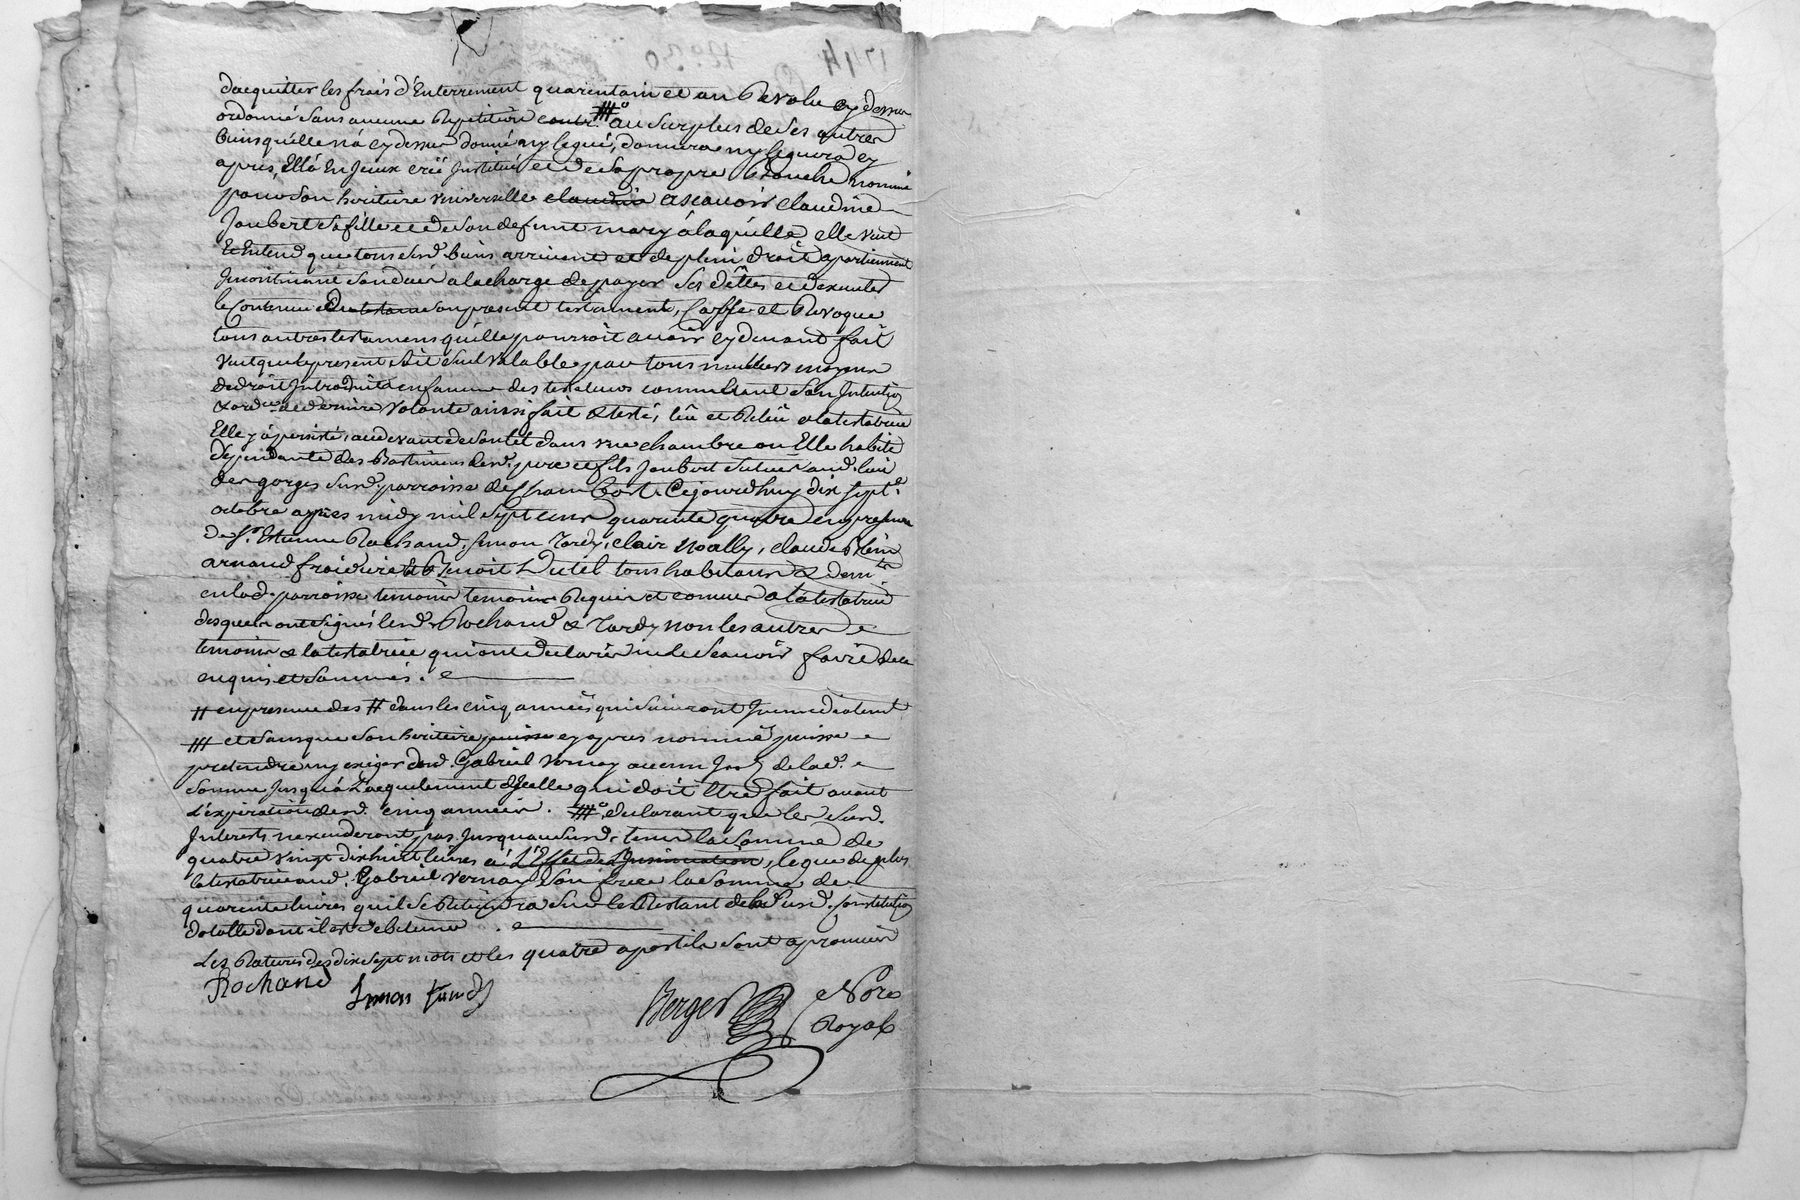 dacquitter les frais d'Enterrement quarentain et an Revolu cy dessus
ordonné sans aucune Repetition contr. #° au surplus de ses autres
biens qu'elle n'a cy dessus donné ny legué, donnera ny leguera cy
apres, Ella En Jceux créé Jnstitué et de sa propre bouche nommé
pour son heritiere universelle claudine ascavoir claudine
Joubert sa fille et de son defunt mary a laquelle elle veut
Et Entend que tous sesd. biens arrivent et de plein droit apartiennent
Jncontinant son decès a la charge de payer ses dettes et dexecuter
le contenu edu testam son present testament, Casse et Revoque
tous autres testamens qu'elle pourroit avoir cy devant fait
Veut que le present soit seul valable par tous meilleurs moyens
de droit Jntroduits en faveur des testateurs comme etant son Jntention
et derniere volonté ainsi fait & testé, lëu et Relëu a la testatrice
Elle y a persisté, au devant de son lit dans une chambre ou Elle habite
dependante des Bastimens desd. pere et fils Joubert situés aud. lieu
des gorges susd. parroisse de Chambost. Cejourdhuy dix sept.e
octobre apres midy mil sept cens quarente quatre en presence
de S.r Etienne Rochand, simon Tardy, clair Noally, claude
arnaud froidure et Benoit Dutel tous habitans & dem.ts
en lad. parroisse temoins temoins Requis et connus a la testatrice
desquels ont signés lesd. Rochand & Tardy non les autres
temoins & la testatrice qui ont declarés ne le scavoir faire de ce
enquis et sommés.
# en presence des # dans les cinq années qui suivront Jmmediatement
## et sans que son heritiere puisse cy apres nommé puisse
pretendre ny exiger dud. Gabriel Vernay aucun Jnt. de lad.
somme Jusqu'a l'acquitement d'Jcelle qui doit Etre fait avant
l'expiration desd. cinq années. ##° declarant que les susd.
Jnterests n'excederont pas Jusqu'au susd. tems la somme de
quatre vingt dix huit livres et a l'Effet de l'Jnsinuation, legue de plus
la testatrice aud. Gabriel Vernay son frere la somme de
quarente livres qu'il se Retiendra sur le Restant de la susd. Constitution
dotalle dont il est debiteur.
Les Ratures des dix sept mots et les quatre apostils sont aprouvés
Rochand Simon tardy
Berger Nore
Royal